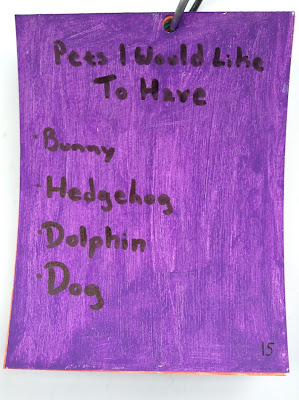 Pets I Would Like
To Have
· Bunny
· Hedgehog
· Dolphin
· Dog
15